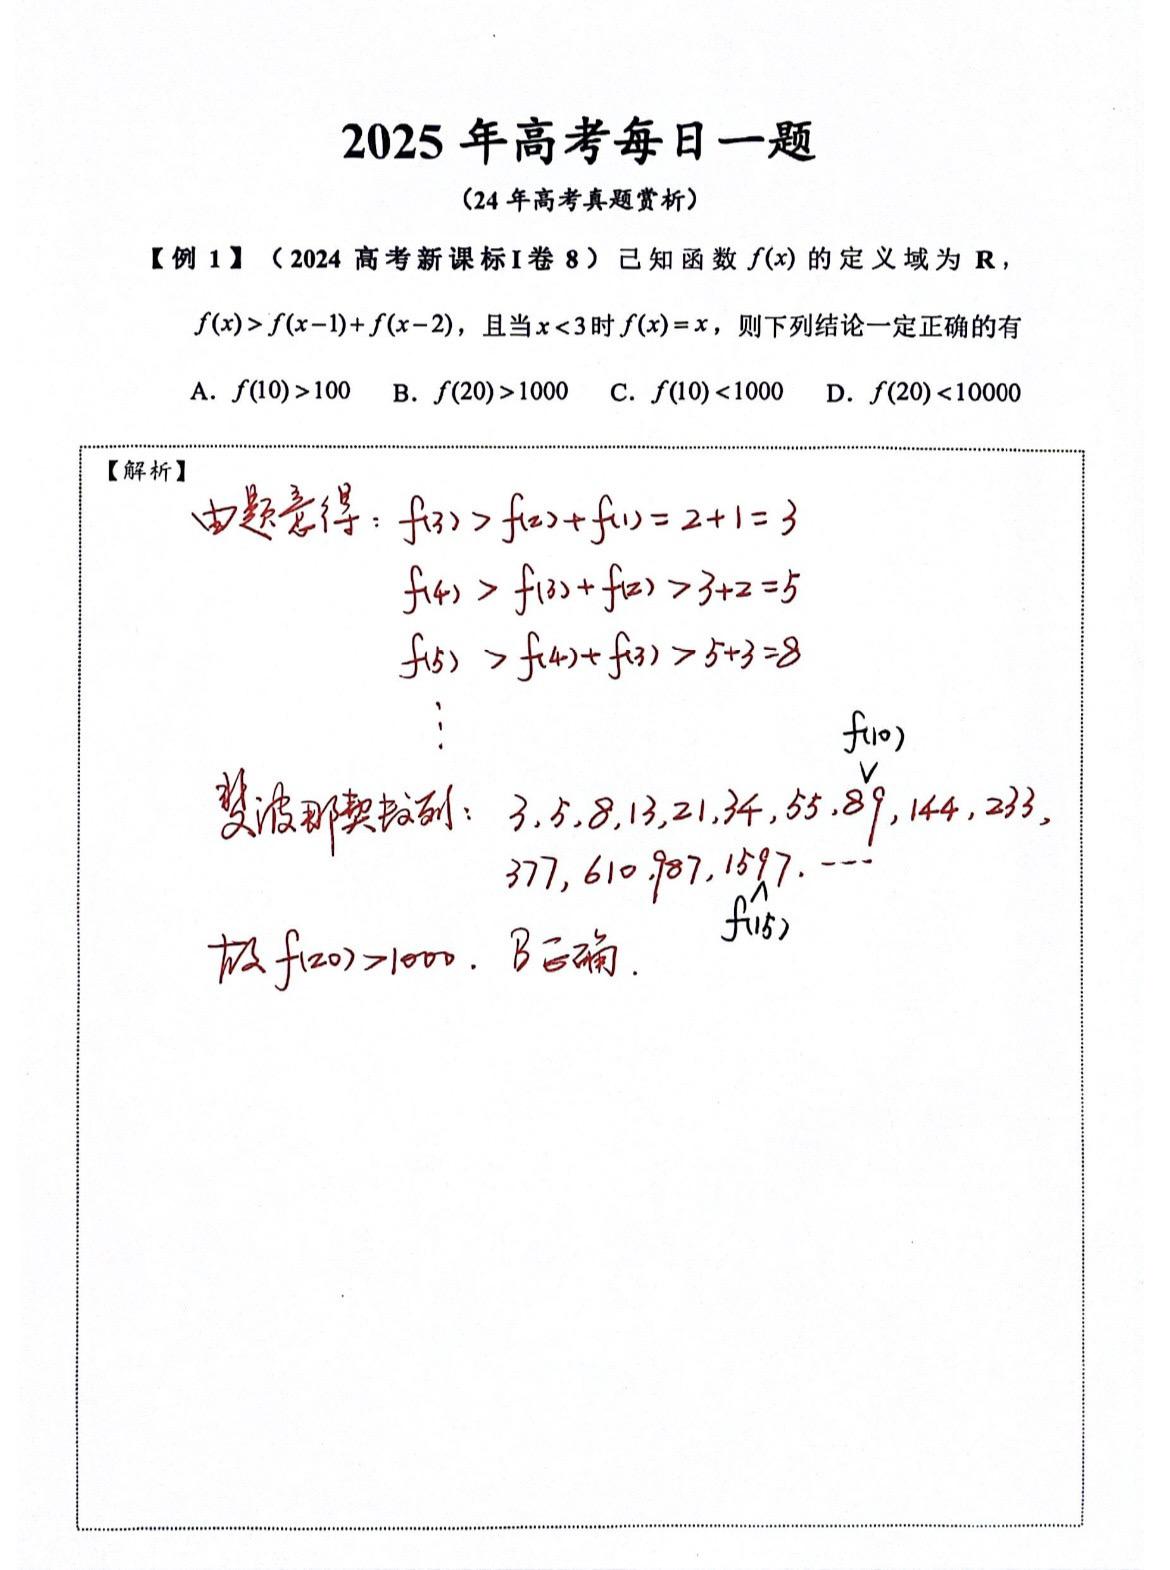 2025 年高考每日一题
（24 年高考真题赏析）
【例 1】（2024 高考新课标I卷 8）已知函数 f(x) 的定义域为 R，
f(x)>f(x−1)+f(x−2)，且当x<3时f(x)=x，则下列结论一定正确的有
A．f(10)>100 B．f(20)>1000 C．f(10)<1000 D．f(20)<10000
【解析】
由题意得：f(3) > f(2)+f(1) = 2+1 = 3
f(4) > f(3)+f(2) > 3+2 = 5
f(5) > f(4)+f(3) > 5+3 = 8
⋮
f(10)
∨
斐波那契数列：3、5、8，13，21，34，55，89，144，233，
377，610，987，1597．---
∧
f(15)
故 f(20)>1000．B正确．